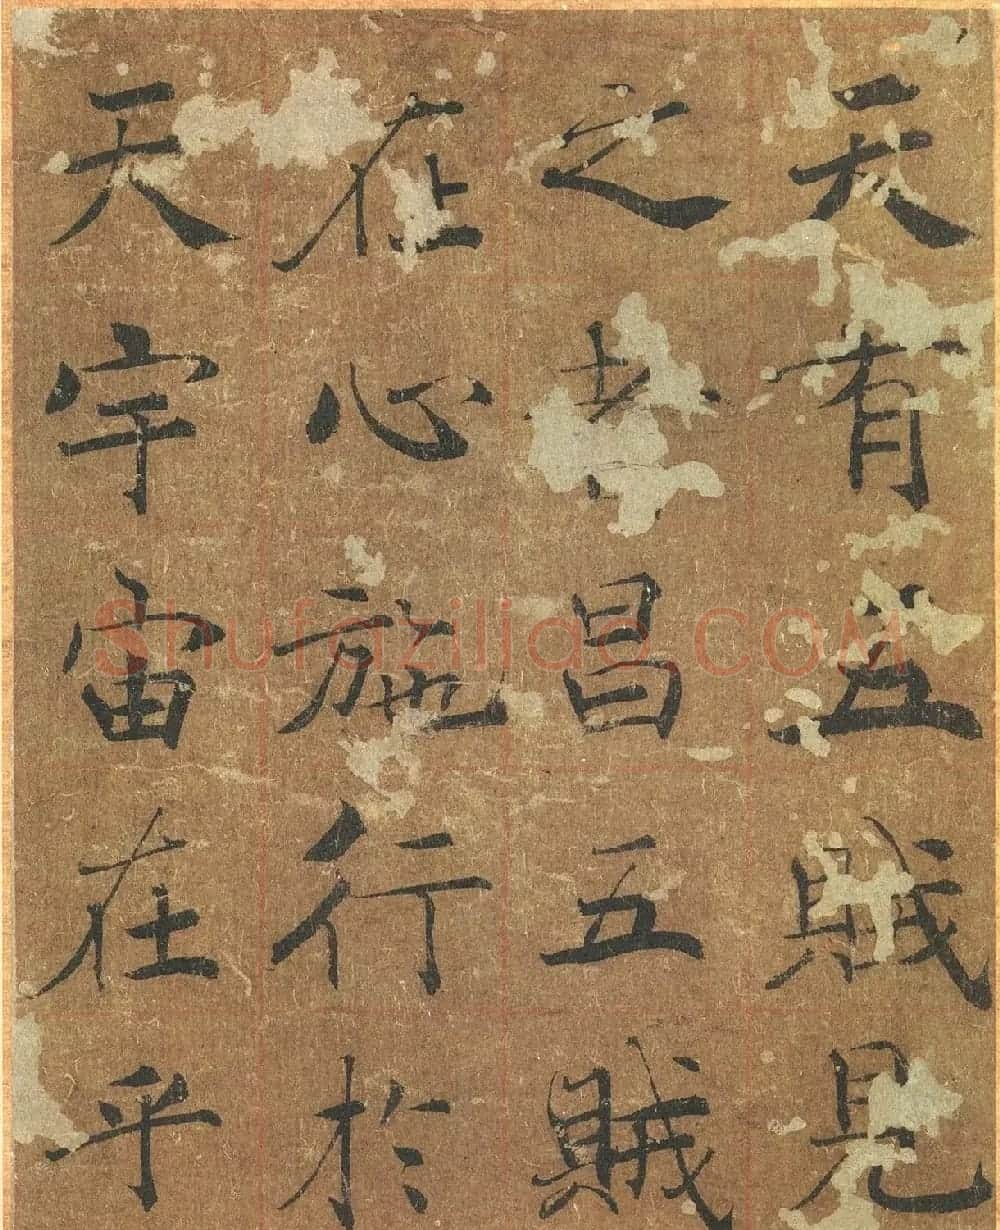 天有五賊見
之者昌五賊
在心施行於
天宇宙在乎
Shufaziliao.COM